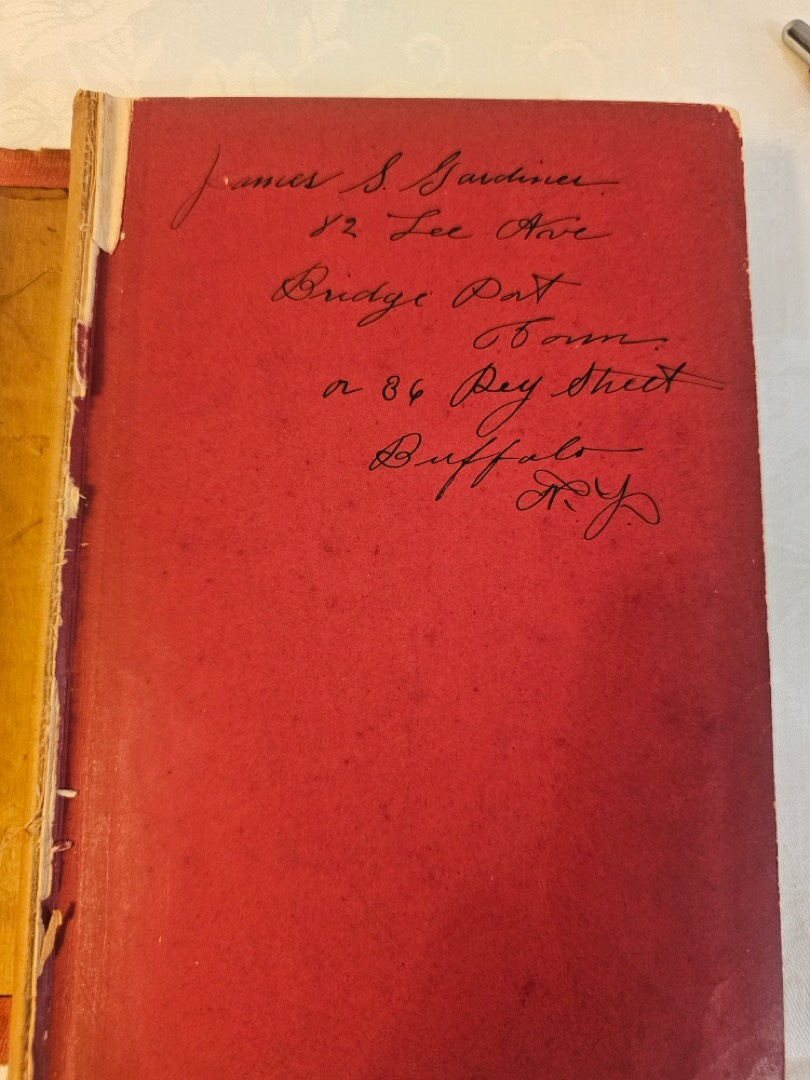 James S. Gardiner
82 Lee Ave
Bridge Port
Conn.
or 86 Dey Street
Buffalo
N.Y.